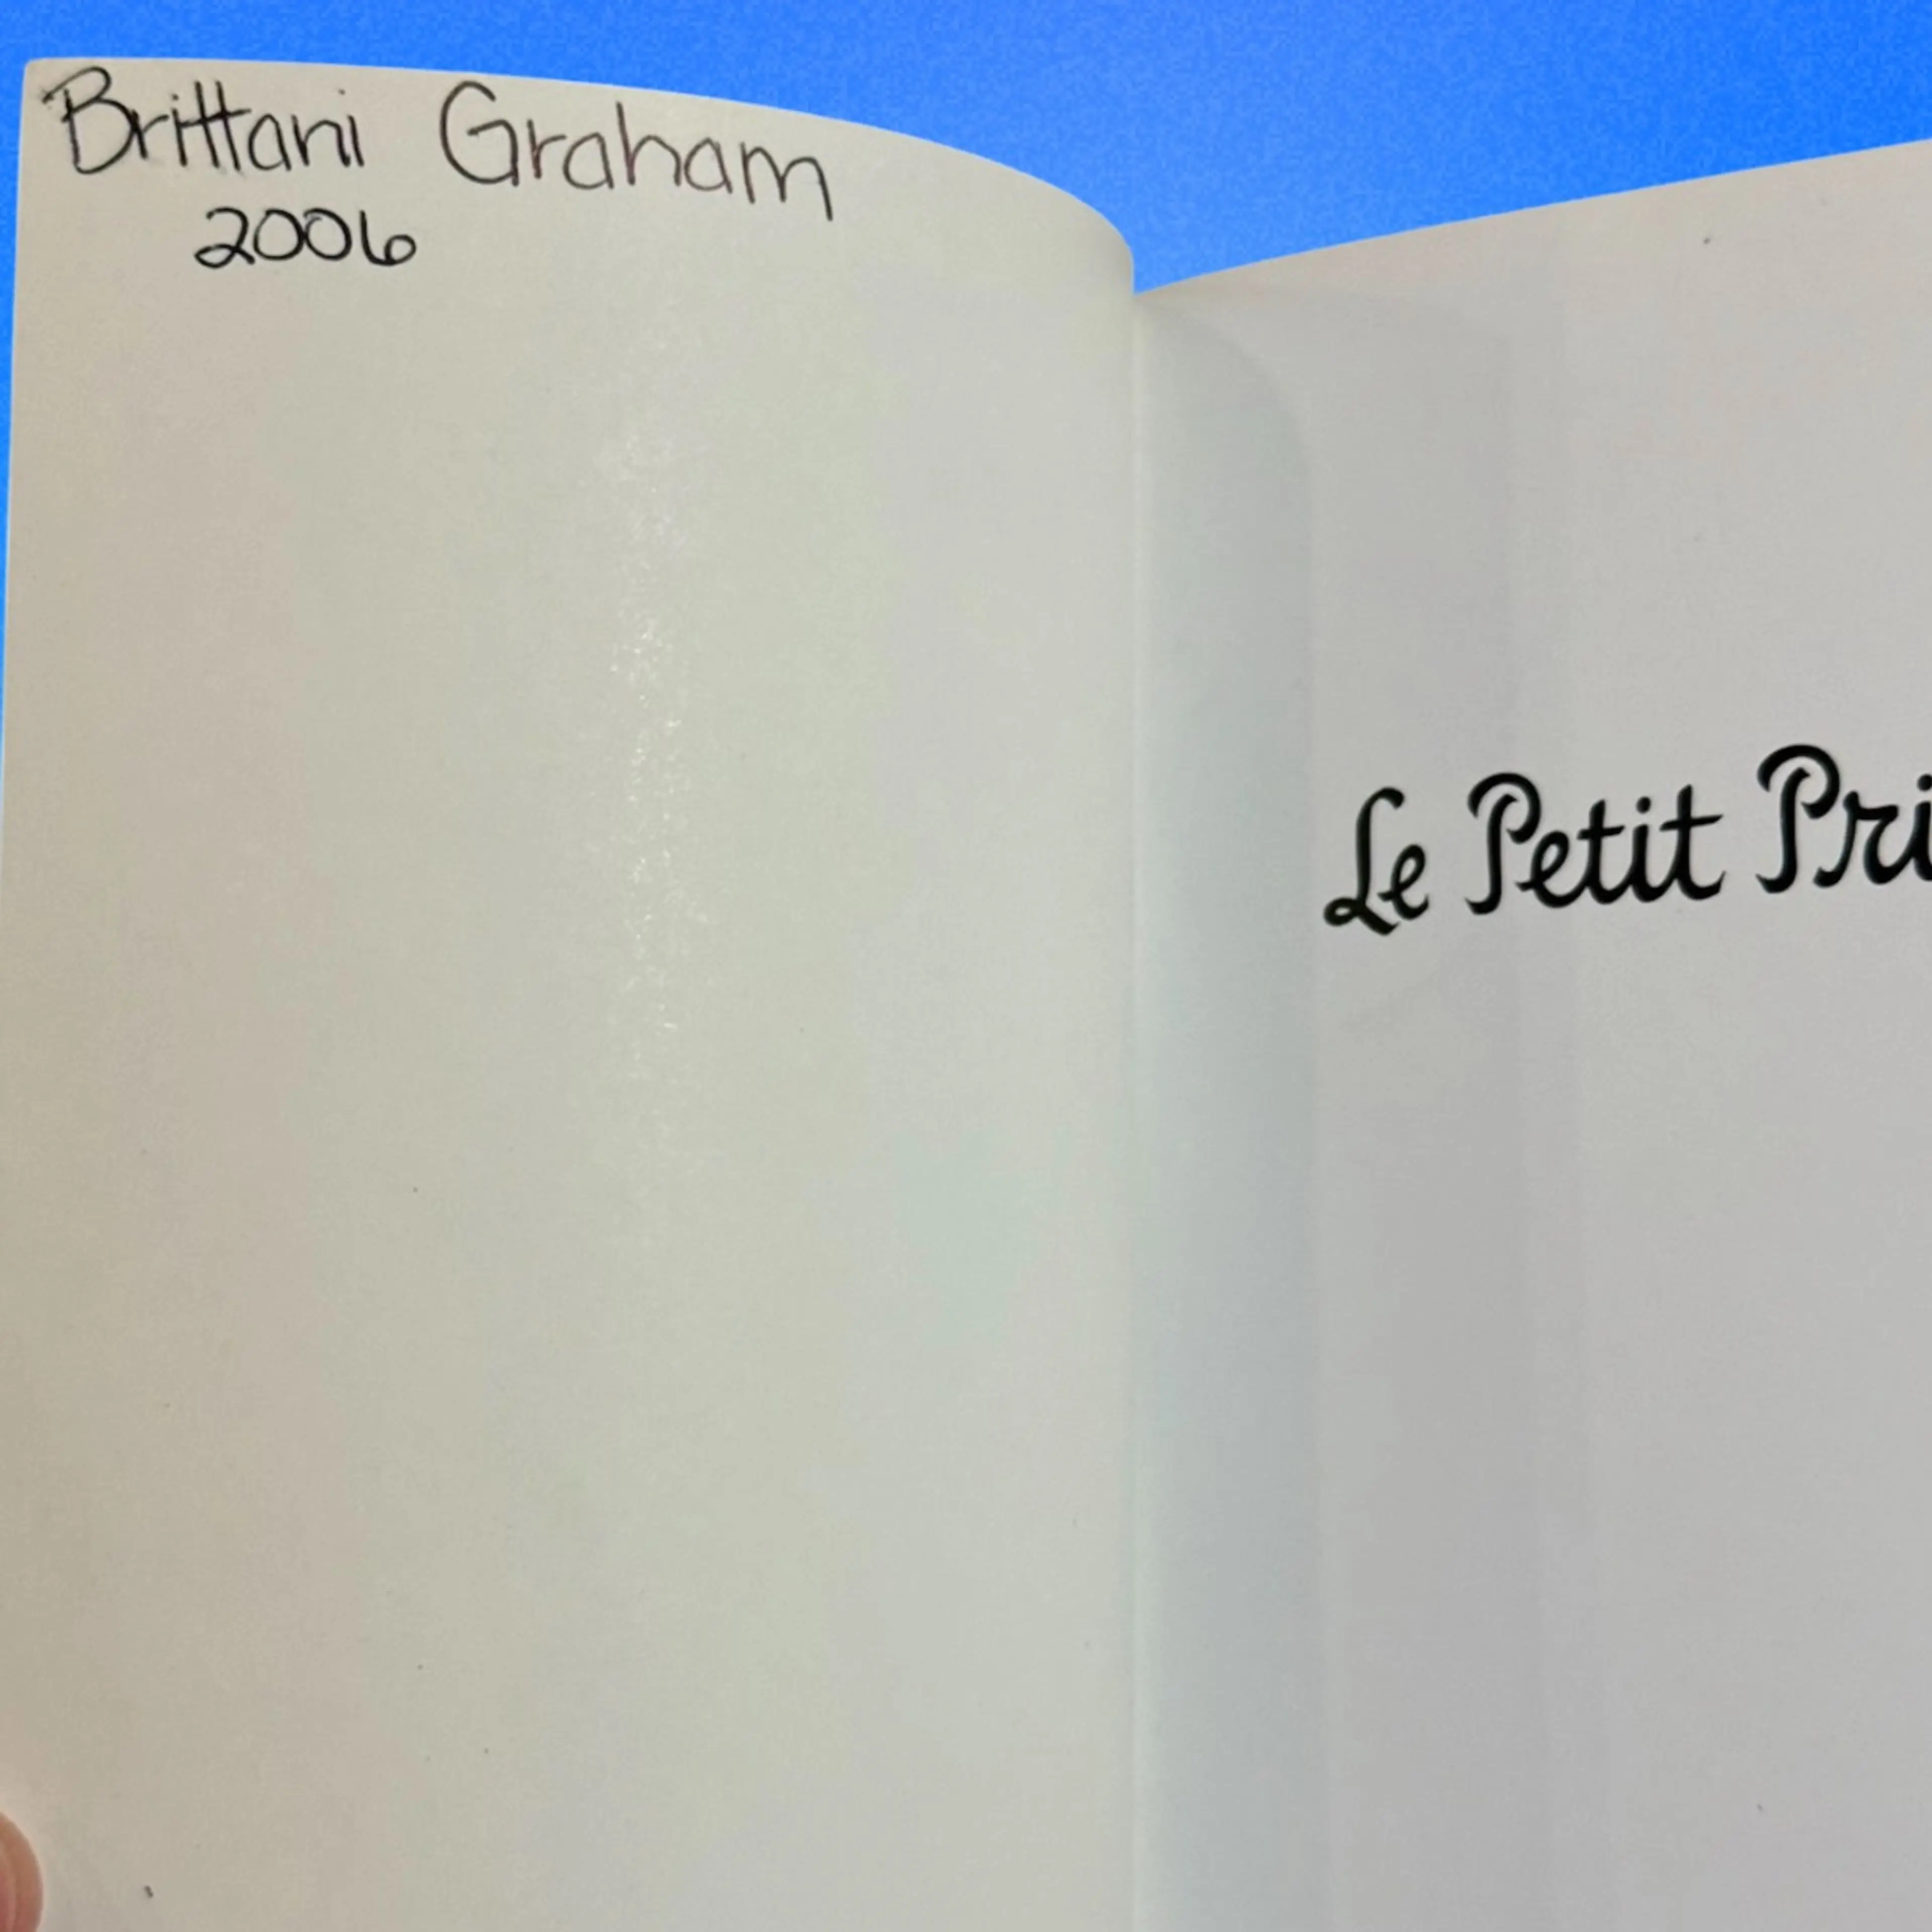 Brittani Graham
2006
Le Petit Pri